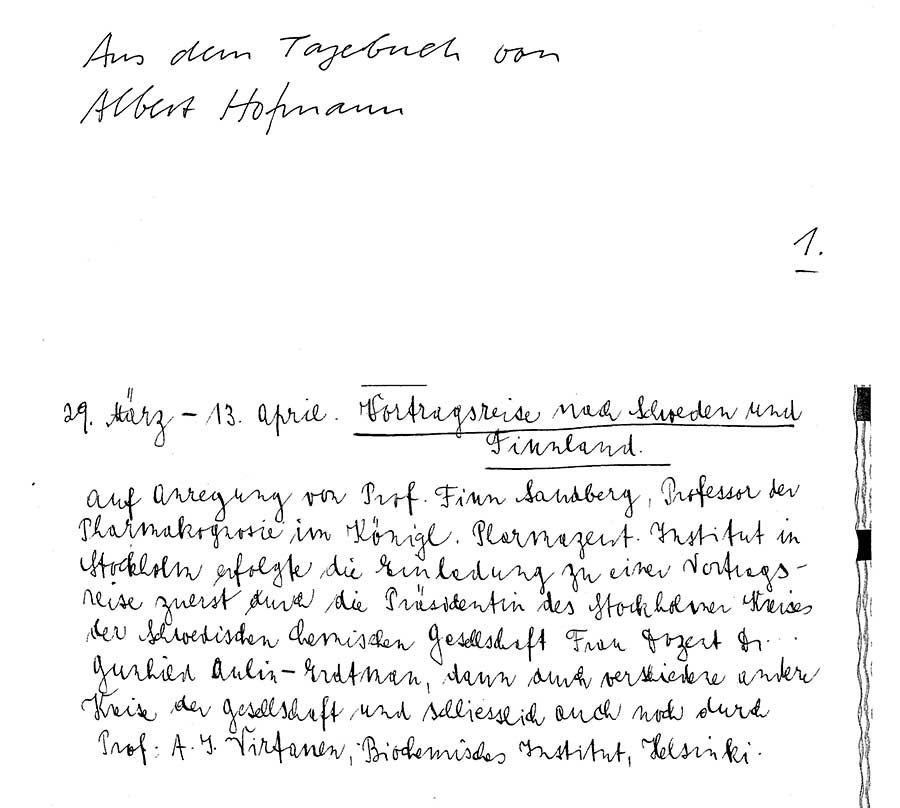 Aus dem Tagebuch von
Albert Hofmann
1.
29. März – 13. April. Vortragsreise nach Schweden und
Finnland.
Auf Anregung von Prof. Finn Sandberg, Professor der
Pharmakognosie im Königl. Pharmazeut. Institut in
Stockholm erfolgte die Einladung zu einer Vortrags-
reise zuerst durch die Präsidentin des Stockholmer Kreises
der Schwedischen Chemischen Gesellschaft Frau Dozent Dr.
Gunhild Aulin-Erdtman, dann auch verschiedene andere
Kreise der Gesellschaft und schliesslich auch noch durch
Prof. A. I. Virtanen, Biochemisches Institut, Helsinki.